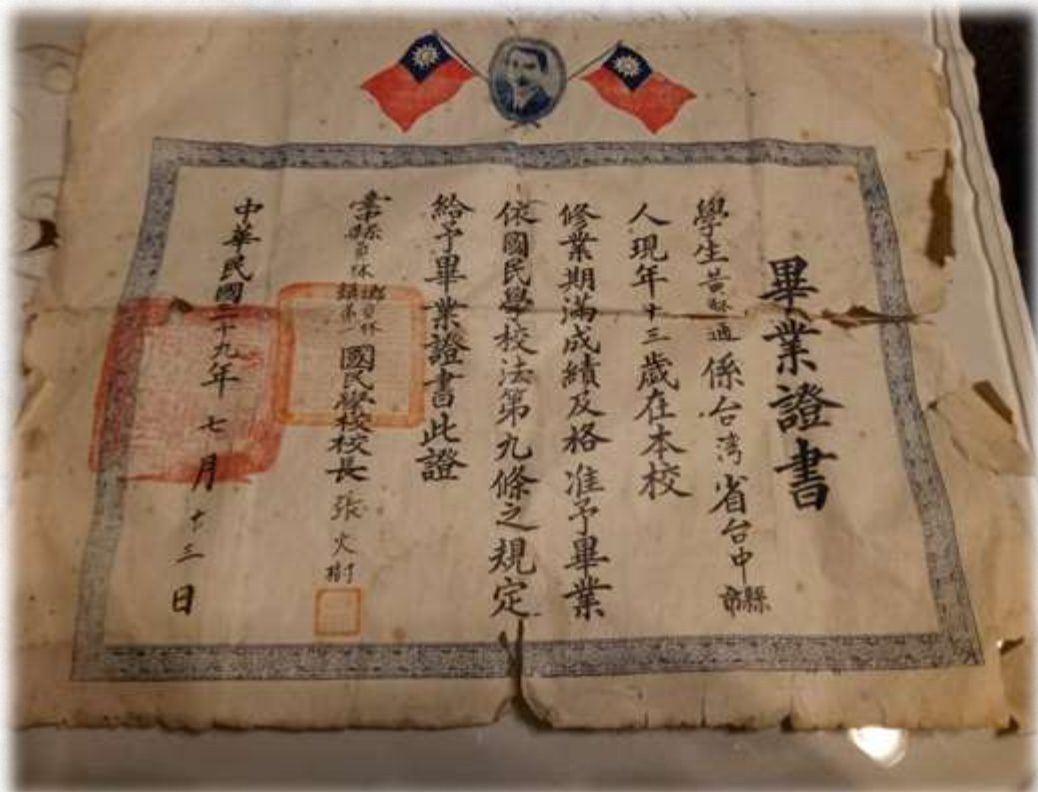 畢業證書
學生黃 適係台灣省台中縣市
人現年十三歲在本校
修業期滿成績及格准予畢業
依國民學校法第九條之規定
給予畢業證書此證
縣員林 第一國民學校校長張火樹
中華民國三十九年七月十三日